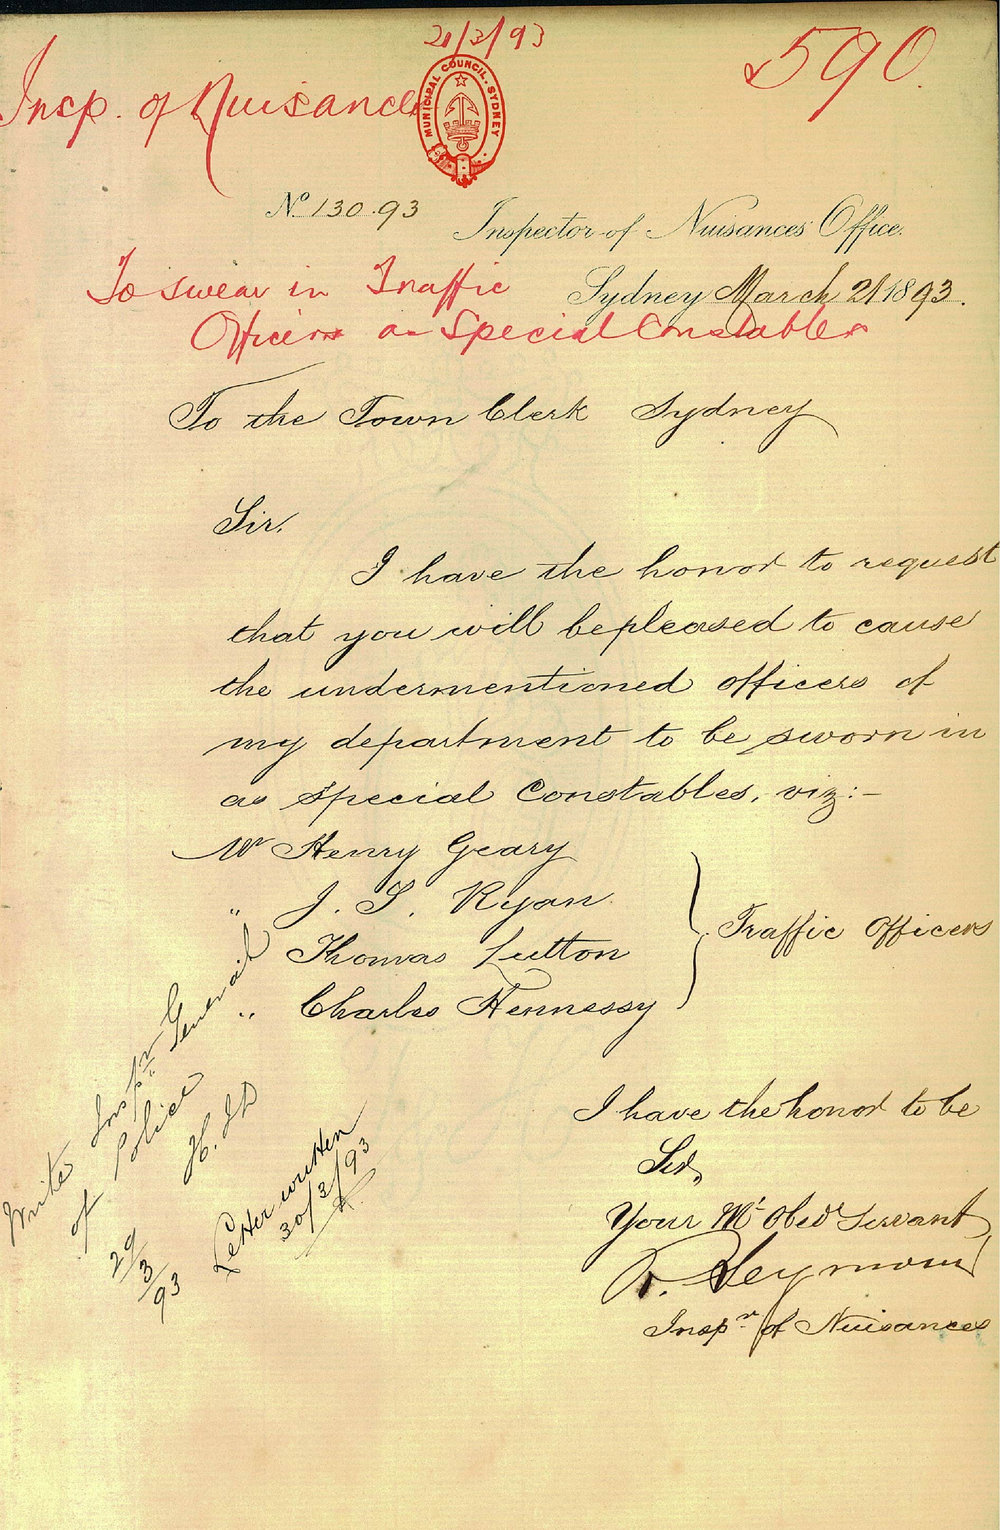 21/3/93
590
Insp. of Nuisances
MUNICIPAL COUNCIL. SYDNEY
No 130.93
Inspector of Nuisances Office.
Sydney March 21 1893.
To swear in Traffic
Officers as Special Constables
To the Town Clerk Sydney
Sir,
I have the honor to request
that you will be pleased to cause
the undermentioned officers of
my department to be sworn in
as Special Constables, viz:-
Mr Henry Geary
" J. S. Ryan
Thomas Lutton
" Charles Hennessy
Traffic Officers
I have the honor to be
Sir,
Your Mt Obedt Servant
Seymour
Inspr of Nuisances
Write Inspr General
of Police
29/3/93
Letter written
30/3/93